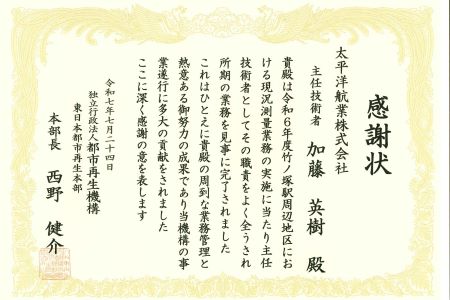 感謝状
太平洋航業株式会社
主任技術者　加藤　英樹　殿
貴殿は令和６年度竹ノ塚駅周辺地区にお
ける現況測量業務の実施に当たり主任
技術者としてその職責をよく全うされ
所期の業務を見事に完了されました
これはひとえに貴殿の周到な業務管理と
熱意ある御努力の成果であり当機構の事
業遂行に多大の貢献をされました
ここに深く感謝の意を表します
令和七年七月二十四日
独立行政法人都市再生機構
東日本都市再生本部
本部長　西野　健介